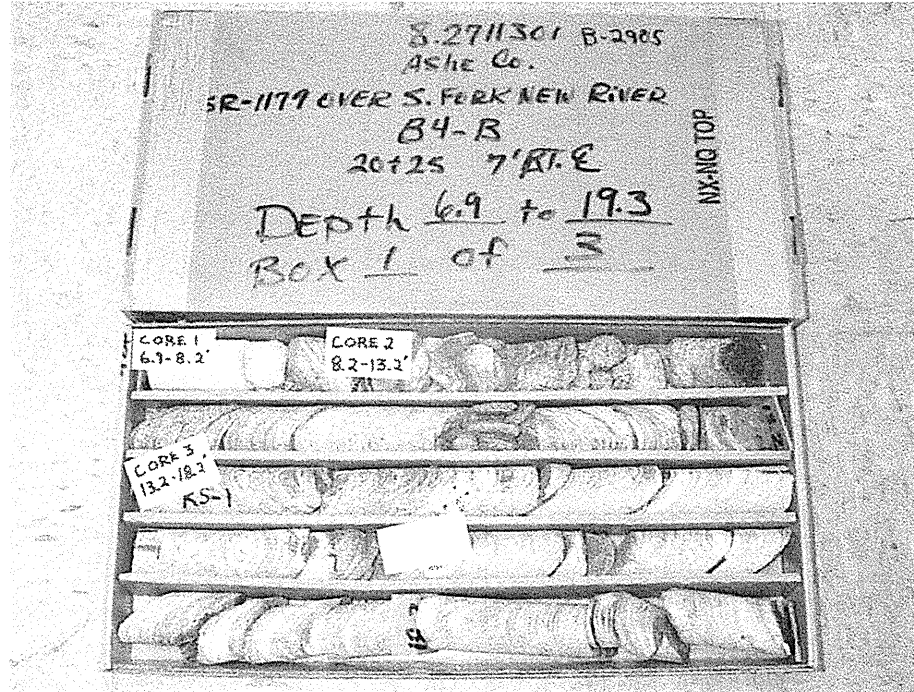 8.2711301 B-2905
Ashe Co.
SR-1179 OVER S. FORK NEW RIVER
B4-B
20+25 7' RT. ℄
NX-NQ TOP
Depth 6.9 to 19.3
Box 1 of 3
CORE 1
6.9-8.2'
CORE 2
8.2-13.2'
CORE 3
13.2-18.2'
RS-1